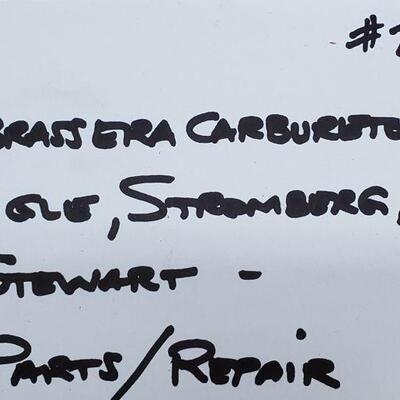 #
BRASS ERA CARBURETO
GLE, STROMBERG,
STEWART -
PARTS/REPAIR